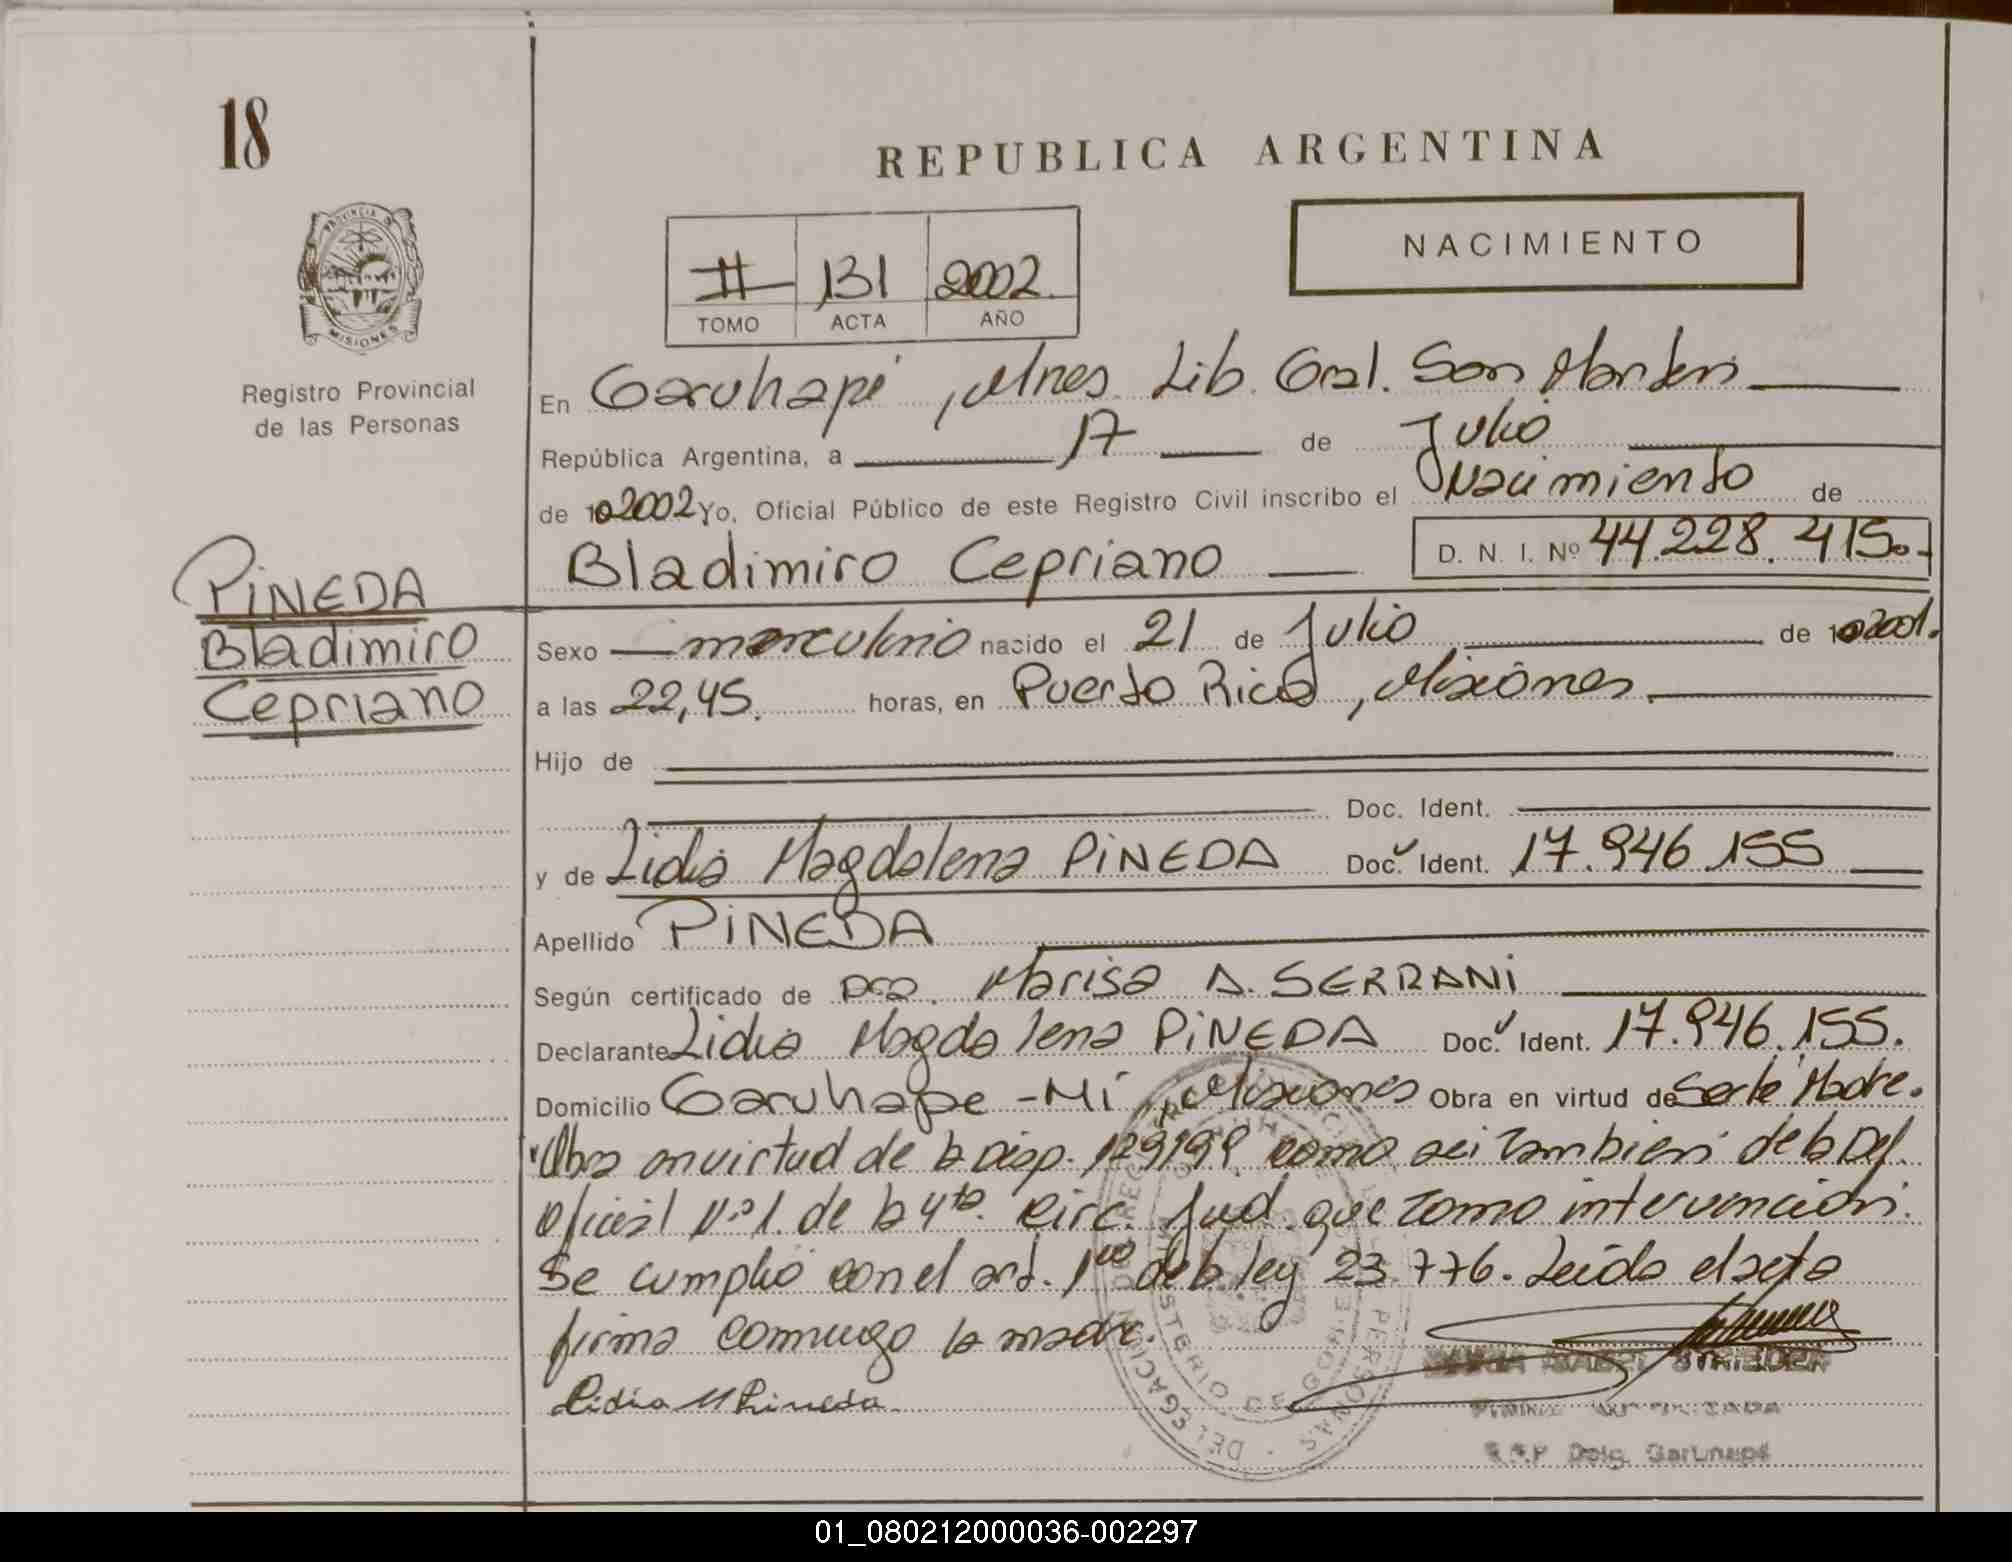 18
REPUBLICA ARGENTINA
NACIMIENTO
II 131 2002
TOMO ACTA AÑO
PROVINCIA DE
MISIONES
Registro Provincial
de las Personas
En Garuhapé, Mnes. Lib. Gral. San Martin
República Argentina, a 17 de Julio
de 2002 Yo, Oficial Público de este Registro Civil inscribo el Nacimiento de
Bladimiro Cepriano D. N. I. Nº 44.228.415.-
PINEDA
Bladimiro
Cepriano
Sexo masculino nacido el 21 de Julio de 2001.
a las 22,45. horas, en Puerto Rico, Misiones.
Hijo de
Doc. Ident.
y de Lidia Magdalena PINEDA Doc. Ident. 17.946.155
Apellido PINEDA
Según certificado de Dra. Marisa A. SERRANI
Declarante Lidia Magdalena PINEDA Doc. Ident. 17.946.155.
Domicilio Garuhape - Mí, Misiones Obra en virtud de Serlo Madre.
Obra en virtud de la Disp. 129/99 como asi tambien de la Def.
Oficial Nº 1. de la 4ta. Circ. Jud. que tomo intervención.
Se cumplio con el art. 1ro de la ley 23.776. Leida el acta
firma conmigo la madre.
Lidia M Pineda.
STRIEDER
R.P.P. Deleg. Garuhapé
01_080212000036-002297